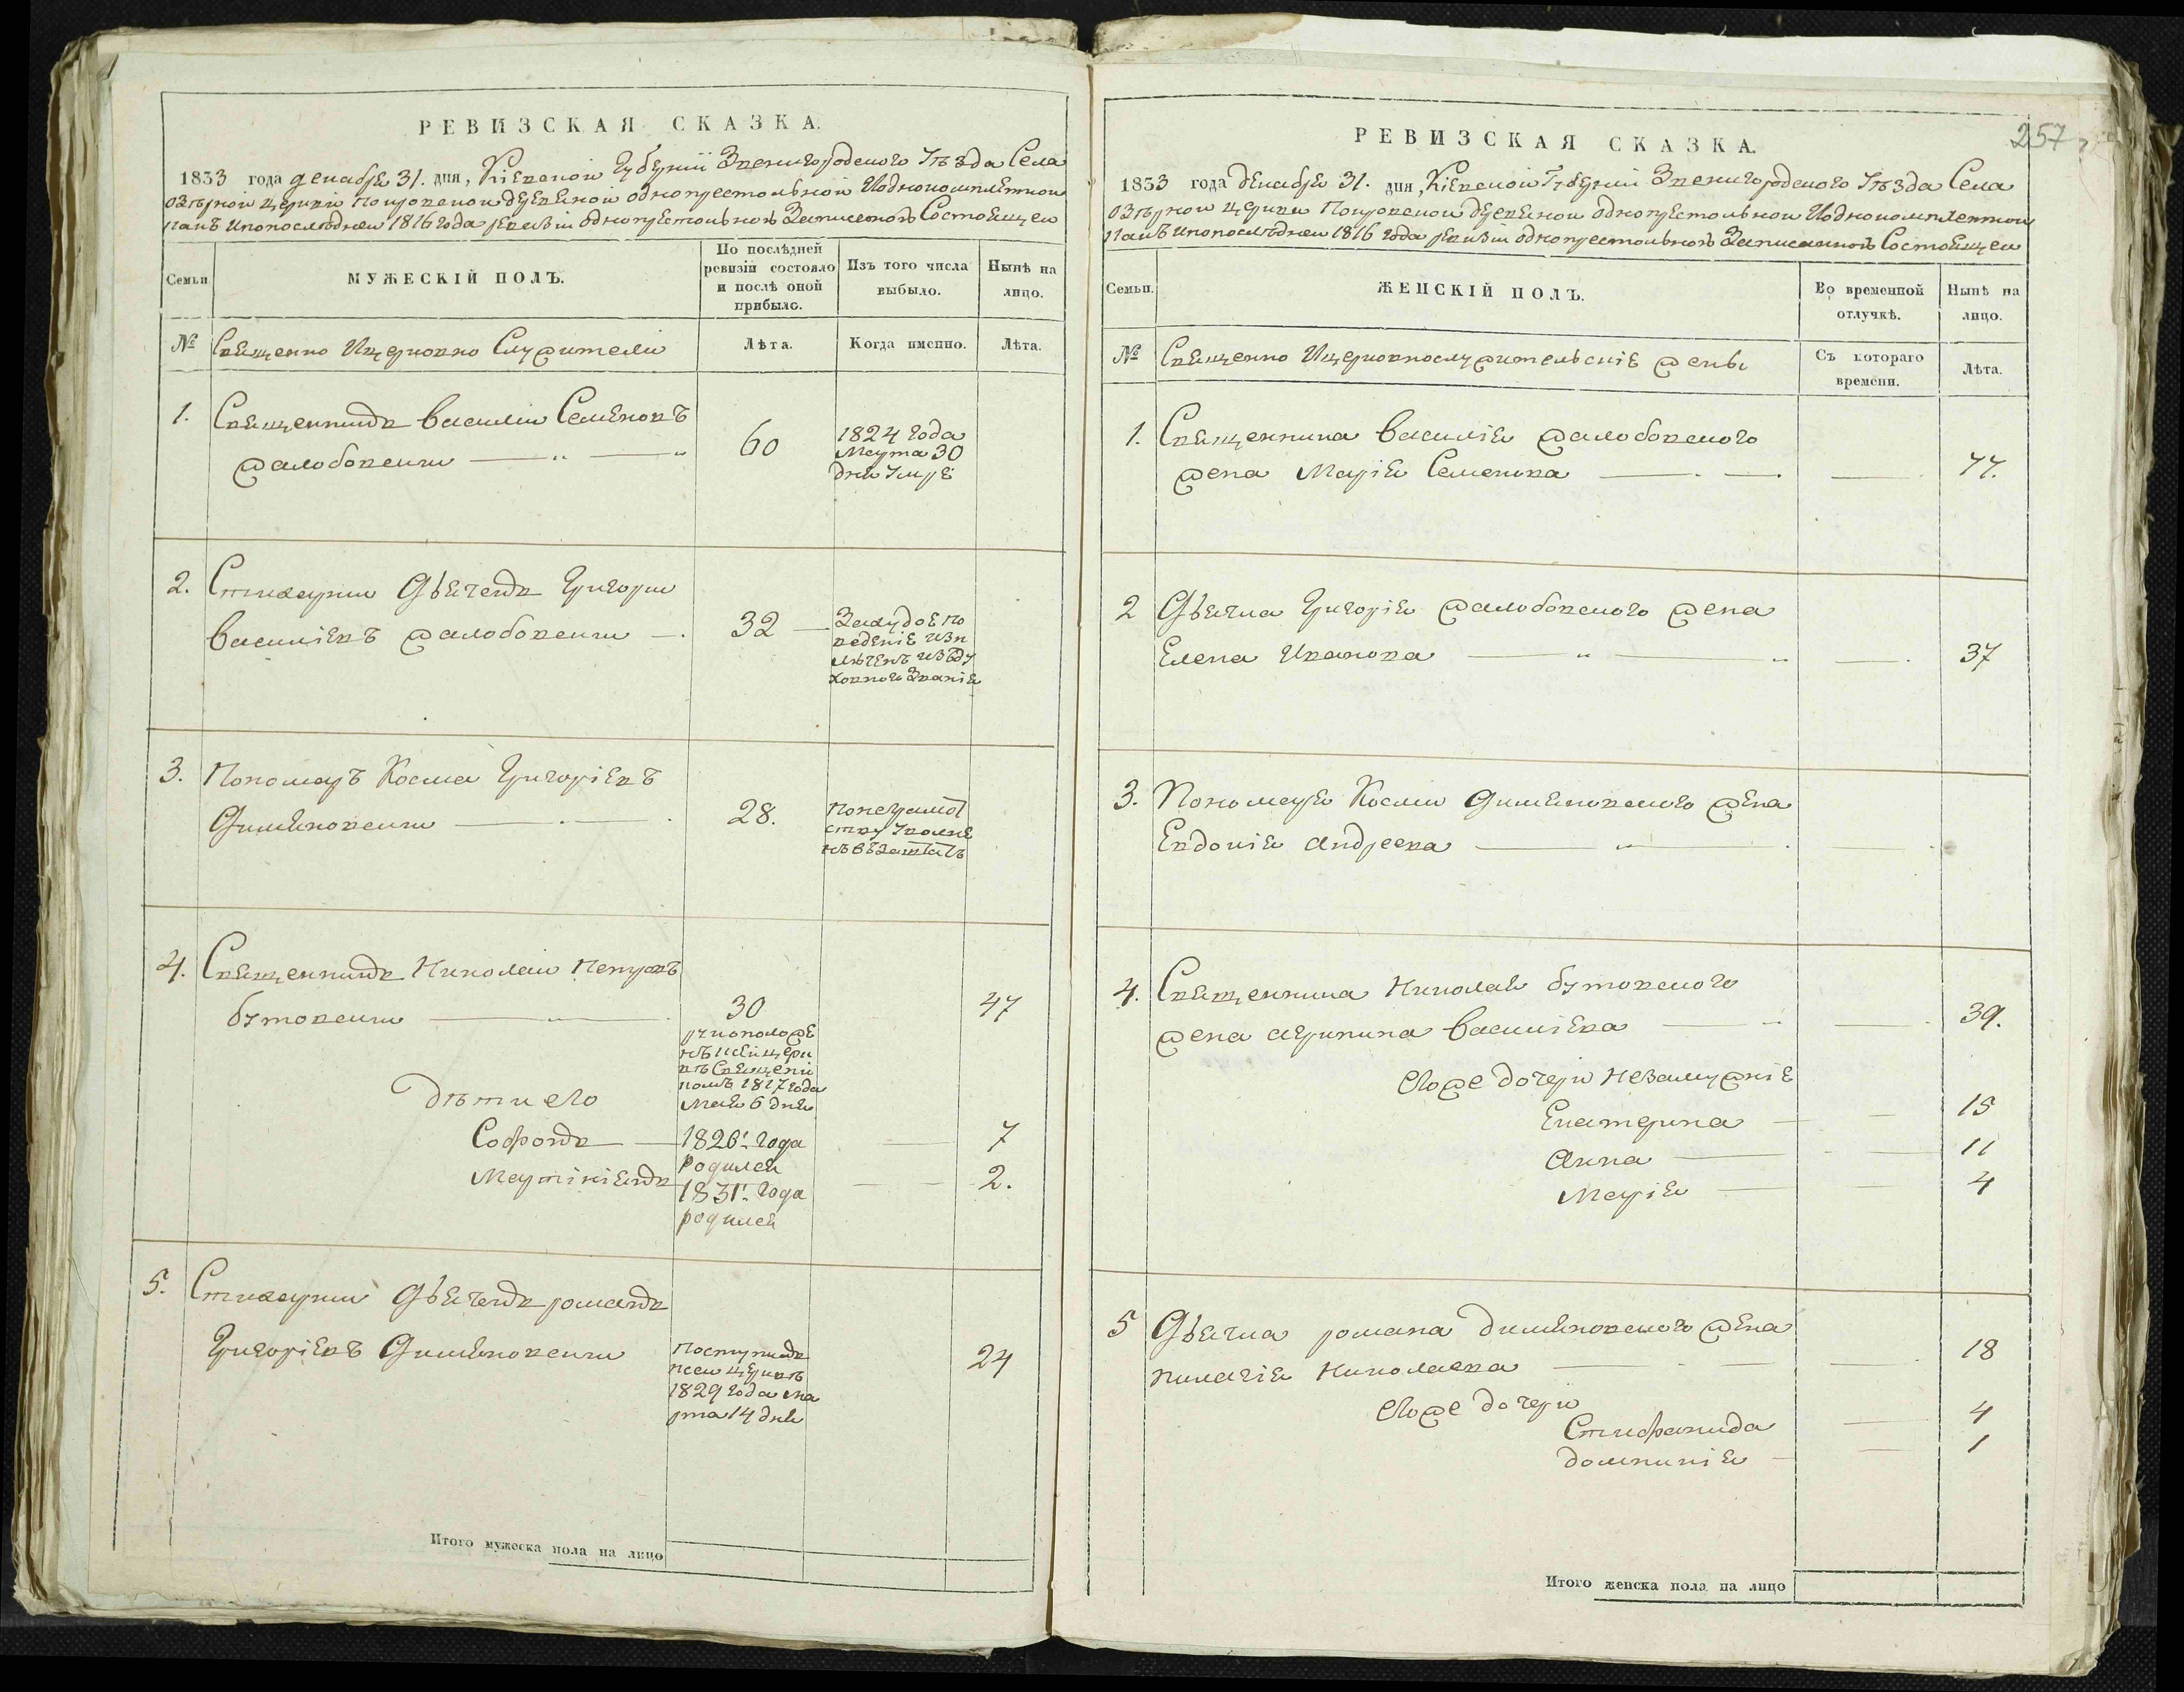 РЕВИЗСКАЯ СКАЗКА.
1833 года декабря 31. дня, Кіевской Губерніи Звенигородского Уѣзда Села
Озѣрной церкви Покровской деревяной однопрестольной Иоднокомплектной
какъ ипопослѣдней 1816 года ревизіи однопрестольной Записаной Состоящей
Семьи.
МУЖЕСКІЙ ПОЛЪ.
По послѣдней ревизіи состояло и послѣ оной прибыло.
Изъ того числа выбыло.
Нынѣ на лицо.
№
Священно Ицерковно Служители
Лѣта.
Когда именно.
Лѣта.
1.
Священникъ Василій Семеновъ
Жалобовскій
60
1824 года
Марта 30
дня Умре
2.
Стихарный Дьячекъ Григорій
Василіевъ Жалобовскій
32
Захудое по
веденіе изк
люченъ изъду
ховного Званія
3.
Пономарь Косма Григоріевъ
Димяновскій
28.
Понеграмот
ству Уволне
нъ въ Заштатъ
4.
Священникъ Николай Петровъ
Бутовскій
30
47
рукоположе
нъ ксей церк
вѣ Священни
комъ 1817 года
Мая 6 дня
Дѣти его
Софонъ
1826. года
родился
7
Мартініянъ
1831. года
родился
2.
5.
Стихарный Дьячекъ романъ
Григоріевъ Димяновскій
Поступилъ
ксей церквѣ
1829 года ма
рта 14 дня
24
Итого мужеска пола на лицо
257
РЕВИЗСКАЯ СКАЗКА.
1833 года декабря 31. дня, Кіевской Губерніи Звенигородского Уѣзда Села
Озѣрной церкви Покровской деревяной однопрестольной Иоднокомплектной
какъ ипопослѣдней 1816 года ревизіи однопрестольной Записанной Состоящей
Семьи.
ЖЕНСКІЙ ПОЛЪ.
Во временной отлучкѣ.
Нынѣ на лицо.
№
Священно Ицерковнослужительскіе жены
Съ котораго времени.
Лѣта.
1.
Священника Василія Жалобовского
жена Марія Семенова
77.
2
Дьячка Григорія Жалобовского жена
Елена Иванова
37
3.
Пономаря Космы Димяновского жена
Евдокія Андреева
4.
Священника Николая Бутовского
жена Агрипина Василіева
39.
Егоже дочери Незамужніе
Екатерина
15
Анна
11
Марія
4
5
Дьячка романа Димяновского жена
Пилагія Николаева
18
Егоже дочери
Стифанида
4
Домникія
1
Итого женска пола на лицо